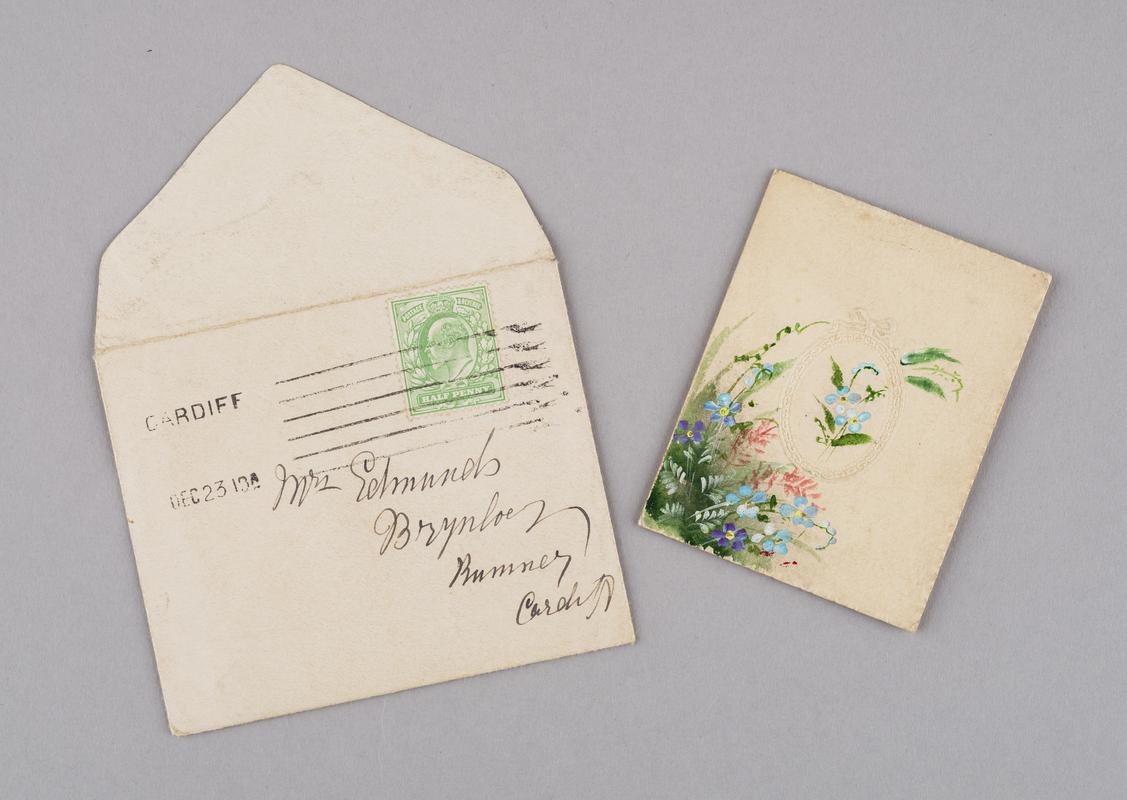 POSTAGE & REVENUE
HALF PENNY
CARDIFF
DEC 23 10A
Mrs Edmunds
Brynloey
Rumney
Cardiff